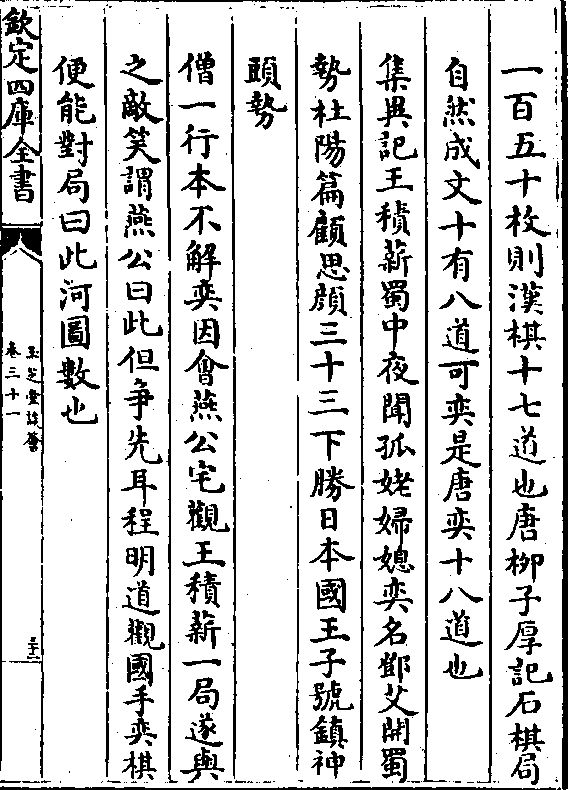 一百五十枚則漢棋十七道也唐柳子厚記石棋局
自然成文十有八道可奕是唐奕十八道也
集異記王積薪蜀中夜聞孤姥婦媳奕名鄧艾開蜀
勢杜陽篇顧思顔三十三下勝日本國王子號鎮神
頭勢
僧一行本不解奕因會燕公宅觀王積薪一局遂與
之敵笑謂燕公曰此但争先耳程明道觀國手奕棋
便能對局曰此河圖數也
欽定四庫全書
玉芝堂談薈
卷三十一
三十二